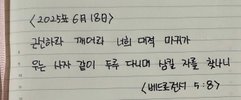 <2025년 6월 18일>
근신하라 깨어라 너희 대적 마귀가
우는 사자 같이 두루 다니며 삼킬 자를 찾나니
<베드로전서 5:8>